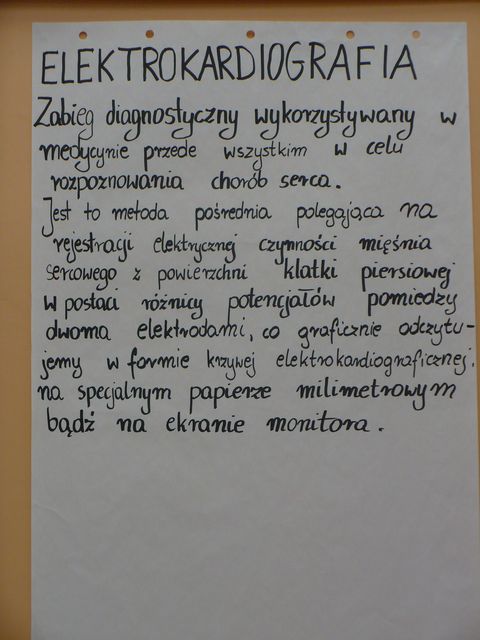 ELEKTROKARDIOGRAFIA
Zabieg diagnostyczny wykorzystywany w
medycynie przede wszystkim w celu
rozpoznowania chorób serca.
Jest to metoda pośrednia polegająca na
rejestracji elektrycznej czynności mięśnia
sercowego z powierzchni klatki piersiowej
w postaci różnicy potencjałów pomiędzy
dwoma elektrodami, co graficznie odczytu-
jemy w formie krzywej elektrokardiograficznej,
na specjalnym papierze milimetrowym
bądź na ekranie monitora.